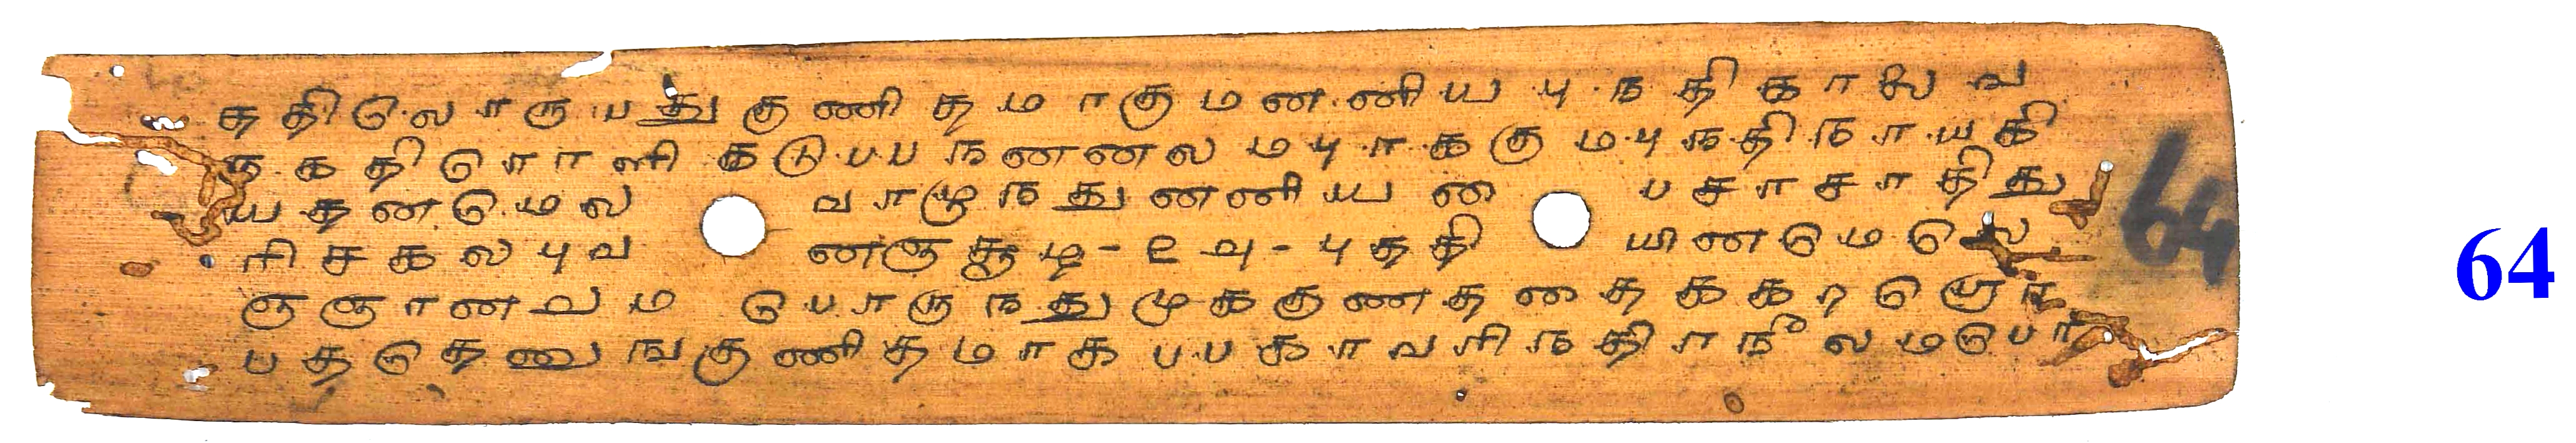 ததிலொருபதுகுணிதமாகுமனனியபுநதிகாலவ
நகதிரொளிகடுபபநனனலமபுராககுமபுநதிநாயகி
யதனமெல வாழுநதுனனியனை பசாசாதிது
ரிசகலபுவ னஞசூழ-௧வ-புததி யினமெலெ
ஞஞானவம பொருநதுமுககுணததைதககாரொ
பததெனுஙகுணிதமாகபபகாவரிநதிராநீலமபொ
64
64